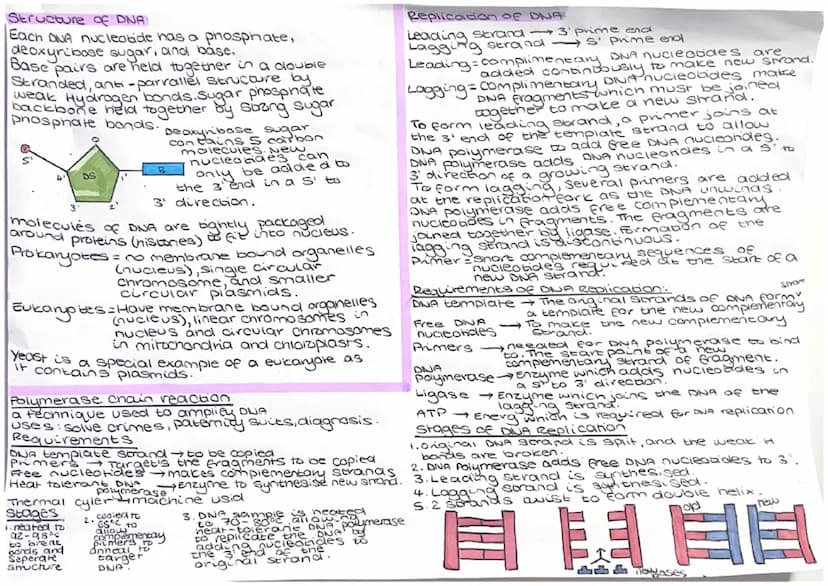 Structure of DNA
Each DNA nucleotide has a phosphate,
deoxyribose sugar, and base.
Base pairs are held together in a double
stranded, anti-parrallel structure by
weak hydrogen bonds. Sugar phosphate
backbone held together by strong sugar
phosphate bonds.
Deoxyribose sugar
contains 5 carbon
molecules, new
nucleotides can
only be added to
the 3' end in a 5' to
3' direction.
5'
4'
DS
1'
B
3'
2'
molecules of DNA are tightly packaged
around proteins (histones) to fit into nucleus.
Prokaryotes = no membrane bound organelles
(nucleus), single circular
chromosome, and smaller
circular plasmids.
Eukaryotes = Have membrane bound organelles
(nucleus), linear chromosomes in
nucleus and circular chromosomes
in mitochondria and chloroplasts.
Yeast is a special example of a eukaryote as
it contains plasmids.
Polymerase chain reaction
a technique used to amplify DNA
uses: solve crimes, paternity suits, diagnosis.
Requirements
DNA template strand → to be copied
Primers → Targets the fragments to be copied
Free nucleotides → makes complementary strands
Heat tolerant DNA polymerase → enzyme to synthesise new strand.
Thermal cyler → machine used
Stages
1. heated to
92-98°C
to break
bonds and
seperate
structure
2. cooled to
55°C to
allow
complementary
primers to
anneal to
target
DNA.
3. DNA sample is heated
to 70-80°C allowing
heat-tolerant DNA polymerase
to replicate the DNA by
adding nucleotides to
the 3' end of the
original strand.
Replication of DNA
Leading strand → 3' prime end
Lagging strand → 5' prime end
Leading = complimentary DNA nucleotides are
added continuously to make new strand.
Lagging = Complimentary DNA nucleotides make
DNA fragments which must be joined
together to make a new strand.
To form leading strand, a primer joins at
the 3' end of the template strand to allow
DNA polymerase to add free DNA nucleotides.
DNA polymerase adds DNA nucleotides in a 5' to
3' direction of a growing strand.
To form lagging, several primers are added
at the replication fork as the DNA unwinds.
DNA polymerase adds free complementary
nucleotides in fragments. The fragments are
joined together by ligase. Formation of the
lagging strand is discontinuous.
Primer = Short complementary sequences of
nucleotides required at the start of a
new DNA strand.
Requirements of DNA Replication:
DNA template → The original strands of DNA form
a template for the new complementary
strand
Free DNA
nucleotides → To make the new complementary
strand.
Primers → needed for DNA polymerase to bind
to. The start point of a new
complementary strand of fragment.
DNA
polymerase → Enzyme which adds nucleotides in
a 5' to 3' direction.
Ligase → Enzyme which joins the DNA of the
lagging strand.
ATP → Energy which is required for DNA replication
Stages of DNA Replication
1. original DNA strand is split, and the weak H
bonds are broken.
2. DNA Polymerase adds free DNA nucleotides to 3'.
3. Leading strand is synthesised.
4. Lagging strand is synthesised.
5. 2 strands twist to form double helix.
old
new